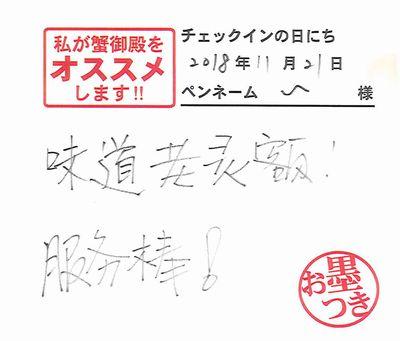 私が蟹御殿を
オススメ
します!!
チェックインの日にち
2018年11月21日
ペンネーム 様
味道老灵额!
服务棒!
お墨つき